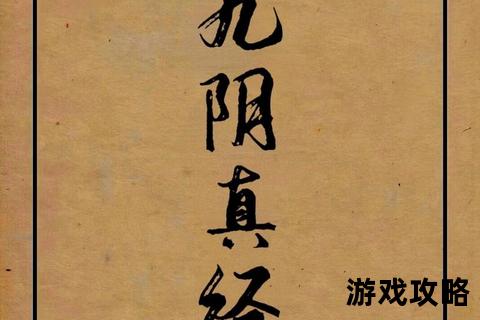 九阴真经
游戏攻略